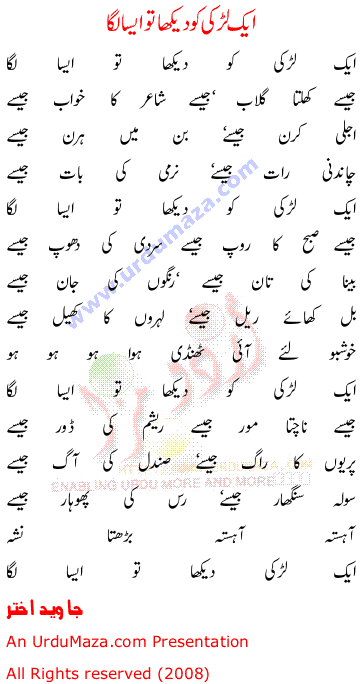 ایک لڑکی کو دیکھا تو ایسا لگا
ایک لڑکی کو دیکھا تو ایسا لگا
جیسے کھلتا گلاب ‘جیسے شاعر کا خواب جیسے
اجلی کرن جیسے‘ بن میں ہرن جیسے
چاندنی رات جیسے‘ نرمی کی بات جیسے
ایک لڑکی کو دیکھا تو ایسا لگا
جیسے صبح کا روپ جیسے سردی کی دھوپ جیسے
بینا کی تان جیسے ‘رنگوں کی جان جیسے
بل کھائے ریل جیسے‘ لہروں کا کھیل جیسے
خوشبو لئے آئی ٹھنڈی ہوا ہو ہو ہو
ایک لڑکی کو دیکھا تو ایسا لگا
جیسے ناچتا مور جیسے ریشم کی ڈور جیسے
پریوں کا راگ جیسے‘ صندل کی آگ جیسے
سولہ سنگھار جیسے‘ رس کی پھوہار جیسے
آہستہ آہستہ بڑھتا نشہ
ایک لڑکی دیکھا تو ایسا لگا
جاوید اختر
An UrduMaza.com Presentation
All Rights reserved (2008)
www.urdumaza.com
اردو مزا
URDUMAZA.COM
ENABLING URDU MORE AND MORE